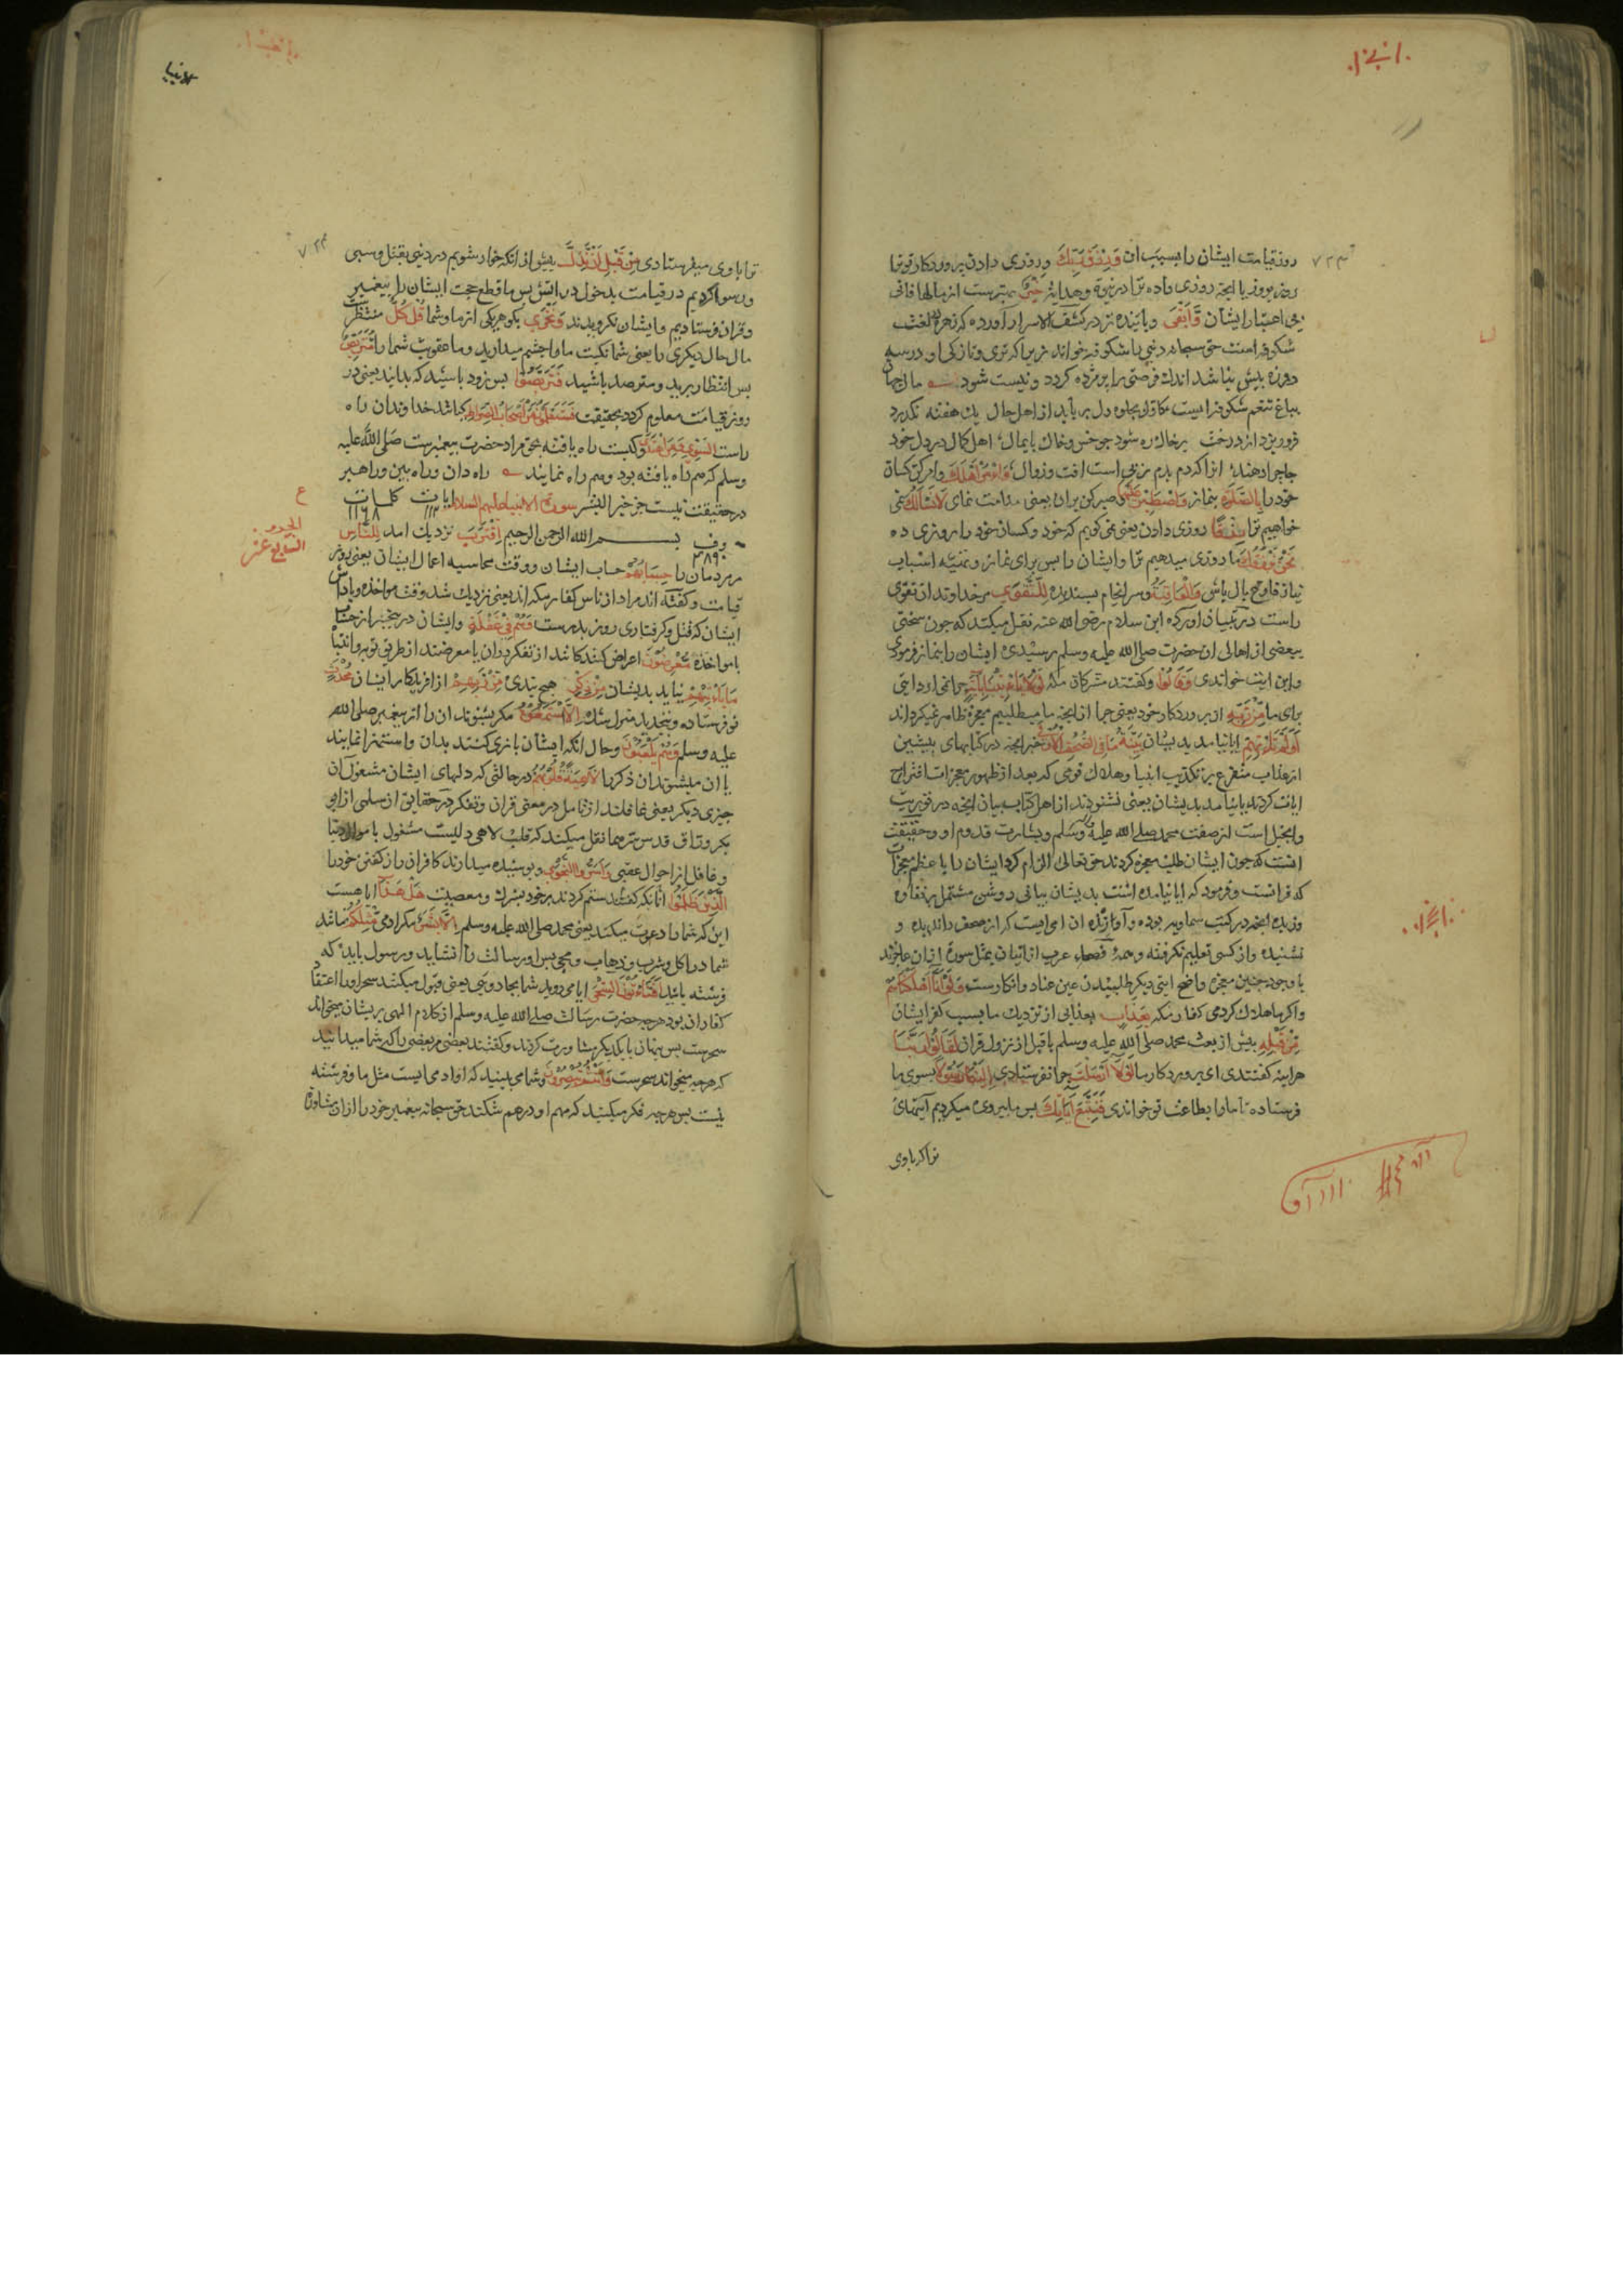 روز قیامت ایشان را بسبب ان وَرِزْقُ رَبِّكَ و روزی دادن پروردکار تو ترا
روز بروز یا انچه روزی داده ترا از نبوة و هدایت خَيْرٌ بهترست از مالها فانی
بی اعتبار ایشان وَأَبْقَى و پاینده تر در کشف الاسرار اورده که زهره بلغت
شکوفه است حق سبحانه دنیی را شکوفه خواند زیرا که تری و تازکی او دو سه
روزه بیش نباشد اندك فرصتی را پژمرده کردد و نیست شود مال جهان
بباغ تنعم شکوفه ایست کاول بجلوه دل برباید از اهل حال یك هفته نکذرد
فرو ریزد از درخت بر خاك ره شود چو خس و خاك پایمال اهل کمال در دل خود
جا چرا دهند انرا که دم بدم ز پی است افت و زوال وَأْمُرْ أَهْلَكَ و امر کن کسان
خود را بِالصَّلَوةِ بنماز وَاصْطَبِرْ عَلَيْهَا و صبر کن بران یعنی مداومت نمای لَا نَسْأَلُكَ نمی
خواهیم ترا رِزْقًا روزی دادن یعنی نمی کوییم که خود و کسان خود را روزی ده
نَحْنُ نَرْزُقُكَ ما روزی میدهیم ترا و ایشان را پس برای نماز و تهیه اسباب
نیاز فارغ بال باش وَالْعَاقِبَةُ و سرانجام پسندیده لِلتَّقْوَى مر خداوندان تقوی
راست در تبیان اورده ابن سلام رضی الله عنه نقل میکند که چون سختی
ببعضی از اهالی ان حضرت صلی الله علیه وسلم رسیدی ایشان را بنماز فرمودی
و این ایت خواندی وَقَالُوا و کفتند مشرکان مکه لَوْلَا يَأْتِينَا بِآيَةٍ چرا نمی ارد ایتی
برای ما مِنْ رَبِّهِ از پروردکار خود یعنی چرا از انچه ما میطلبیم معجزه ظاهر نمیکرداند
أَوَلَمْ تَأْتِهِمْ ایا نیامد بدیشان بَيِّنَةُ مَا فِي الصُّحُفِ الْأُولَى خبر انچه در کتابهای پیشین
از عذاب متفرع بر تکذیب انبیا و هلاك قومی که بعد از ظهور معجزات اقتراح
ایات کردند یا نیامد بدیشان یعنی نشنودند از اهل کتاب بیان انچه در توریت
وانجیل است از صفت محمد صلی الله علیه وسلم و بشارت قدوم او و حقیقت
انست که چون ایشان طلب معجزه کردند حق تعالی الزام کرد ایشان را باعظم معجزات
که قرانست و فرمود که ایا نیامده است بدیشان بیانی روشن مشتمل بر نقاوه
و زبده انچه در کتب سماویه بوده و آورنده ان امی ایست که از صحف ندیده و
نشنیده و از کسی تعلیم نکرفته و همهٔ فصحاء عرب از اتیان بمثل سورهٔ ازان عاجزند
با وجود چنین معجزه واضح ایتی دیکر طلبیدن عین عناد و انکارست وَلَوْ أَنَّا أَهْلَكْنَاهُمْ
و اکر ما هلاك کردمی کفار مکه بِعَذَابٍ بعذابی از نزدیك ما بسبب کفر ایشان
مِنْ قَبْلِهِ پیش از بعث محمد صلی الله علیه وسلم یا قبل از نزول قران لَقَالُوا رَبَّنَا
هر اینه کفتندی ای پروردکار ما لَوْلَا أَرْسَلْتَ چرا نفرستادی إِلَيْنَا رَسُولًا بسوی ما
فرستاده تا ما را بطاعت تو خواندی فَنَتَّبِعَ آيَاتِكَ پس ما پیروی میکردیم آیتهای
ترا که باوی
ترا باوی میفرستادی مِنْ قَبْلِ أَنْ نَذِلَّ پیش از انکه خوار شویم در دنیی بقتل و سبی
و رسوا کردیم در قیامت بدخول در اتش پس ما قطع حجت ایشان را پیغمبر
و قران فرستادیم و ایشان نکرویدند وَنَخْزَى بکو هر یکی از ما و شما قُلْ كُلٌّ منتظر
مال حال دیکری را یعنی شما نکبت ما را چشم میدارید و ما عقوبت شما را مُتَرَبِّصٌ
پس انتظار برید و مترصد باشید فَتَرَبَّصُوا پس زود باشد که بدانید یعنی در
روز قیامت معلوم کردد بحقیقت فَسَتَعْلَمُونَ مَنْ أَصْحَابُ الصِّرَاطِ که باشد خداوندان راه
راست السَّوِيِّ وَمَنِ اهْتَدَى و کیست راه یافته بحق مراد حضرت پیغمبرست صلی الله علیه
وسلم که هم راه یافته بود و هم راه نماینده راه دان و راه بین و راهبر
در حقیقت نیست جز خیر البشر سورة الانبیا علیهم السلام ایات ۱۱۲ کلمات ۱۱۶۸
حروف ۴۸۹۰ بسم الله الرحمن الرحیم اِقْتَرَبَ نزدیك امد لِلنَّاسِ
مر مردمان را حِسَابُهُمْ حساب ایشان و وقت محاسبه اعمال ایشان یعنی روز
قیامت و کفته اند مراد از ناس کفار مکه اند یعنی نزدیك شد وقت مواخذه و پاداش
ایشان که قتل و کرفتاری روز بدرست وَهُمْ فِي غَفْلَةٍ و ایشان در بیخبری از حساب
یا مواخذه مُعْرِضُونَ اعراض کنندکانند از تفکر دران یا معرضند از طریق توبه و انتباه
مَا يَأْتِيهِمْ نیاید بدیشان مِنْ ذِكْرٍ هیچ پندی مِنْ رَبِّهِمْ از افریدکار ایشان مُحْدَثٍ
نو فرستاده و بتجدید منزل شده إِلَّا اسْتَمَعُوهُ مکر بشنوند ان را از پیغمبر صلی الله
علیه وسلم وَهُمْ يَلْعَبُونَ و حال انکه ایشان بازی کنند بدان و استهزا نمایند
یا ان میشنوند ان ذکر را لَاهِيَةً قُلُوبُهُمْ در حالتی که دلهای ایشان مشغول ان
چیزی دیکر یعنی غافلند از تامل در معنی قران و تفکر در حقایق از سلمی از ابو
بکر وراق قدس سرهما نقل میکند که قلب لاهی دلیست مشغول باموال دنیا
و غافل از احوال عقبی وَأَسَرُّوا النَّجْوَى و پوشیده میدارند کافران راز کفتن خود را
الَّذِينَ ظَلَمُوا انانکه کفتند ستم کردند بر خود بشرك و معصیت هَلْ هَذَا ایا هست
این که شما را دعوت میکند یعنی محمد صلی الله علیه وسلم إِلَّا بَشَرٌ مکر ادمی مِثْلُكُمْ مانند
شما در اکل و شرب و ذهاب و مجی پس او رسالت را نشاید و رسول باید که
فرشته باید أَفَتَأْتُونَ السِّحْرَ ایا می روید شما بجادویی یعنی قبول میکنید سحر او را اعتقاد
کفار ان بود هرچه حضرت رسالت صلی الله علیه وسلم از کلام الهی بر ایشان میخواند
سحرست پس پنهان با یکدیکر مشاورت کردند و کفتند بعضی مر بعضی را که شما میدانید
که هرچه میخواند سحرست وَأَنْتُمْ تُبْصِرُونَ و شما می بینید که او ادمی ایست مثل ما و فرشته
نیست پس هرچه فکر میکنید که مهم او درهم شکنند حق سبحانه پیغمبر خود را ازان مشاوره